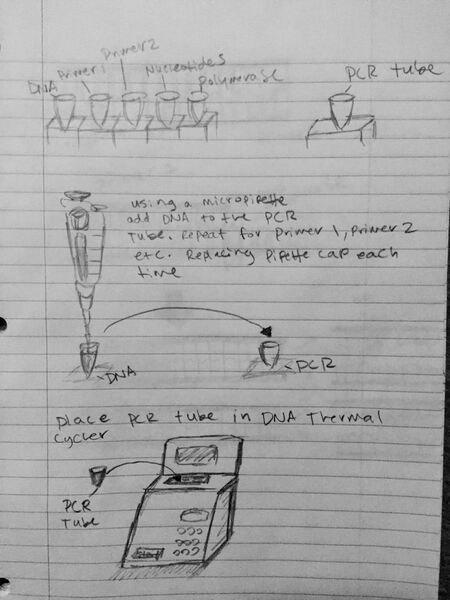 DNA
Primer 1
Primer 2
Nucleotides
Polymerase
PCR tube
using a micropipette
add DNA to the PCR
Tube. Repeat for Primer 1, Primer 2
etc. Replacing Pipette cap each
time
DNA
PCR
Place PCR tube in DNA Thermal
Cycler
PCR
Tube